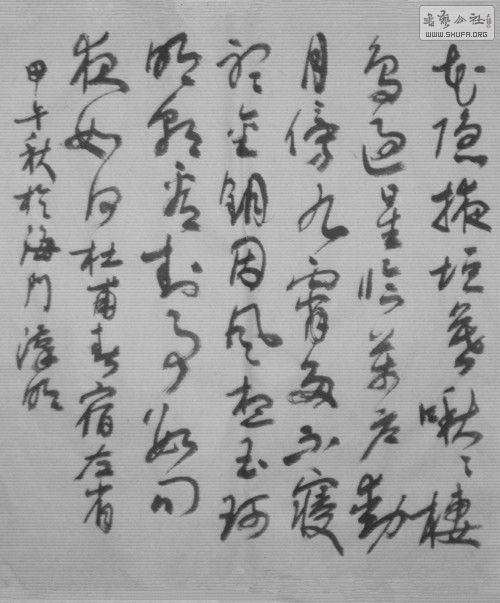 花隐掖垣暮啾々棲
鸟过星临萬户動
月傍九霄多不寝
听金钥因风想玉珂
明朝有封事数问
夜如何杜甫春宿左省
甲午秋於海门明
書藝公社
WWW.SHUFA.ORG